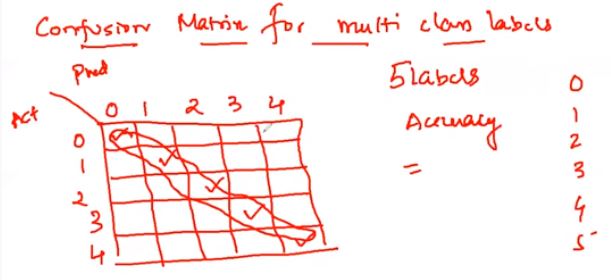 Confusion Matrix for multi class labels
Pred
Act
0 1 2 3 4
0
1
2
3
4
5 labels
Accuracy
=
0
1
2
3
4
5